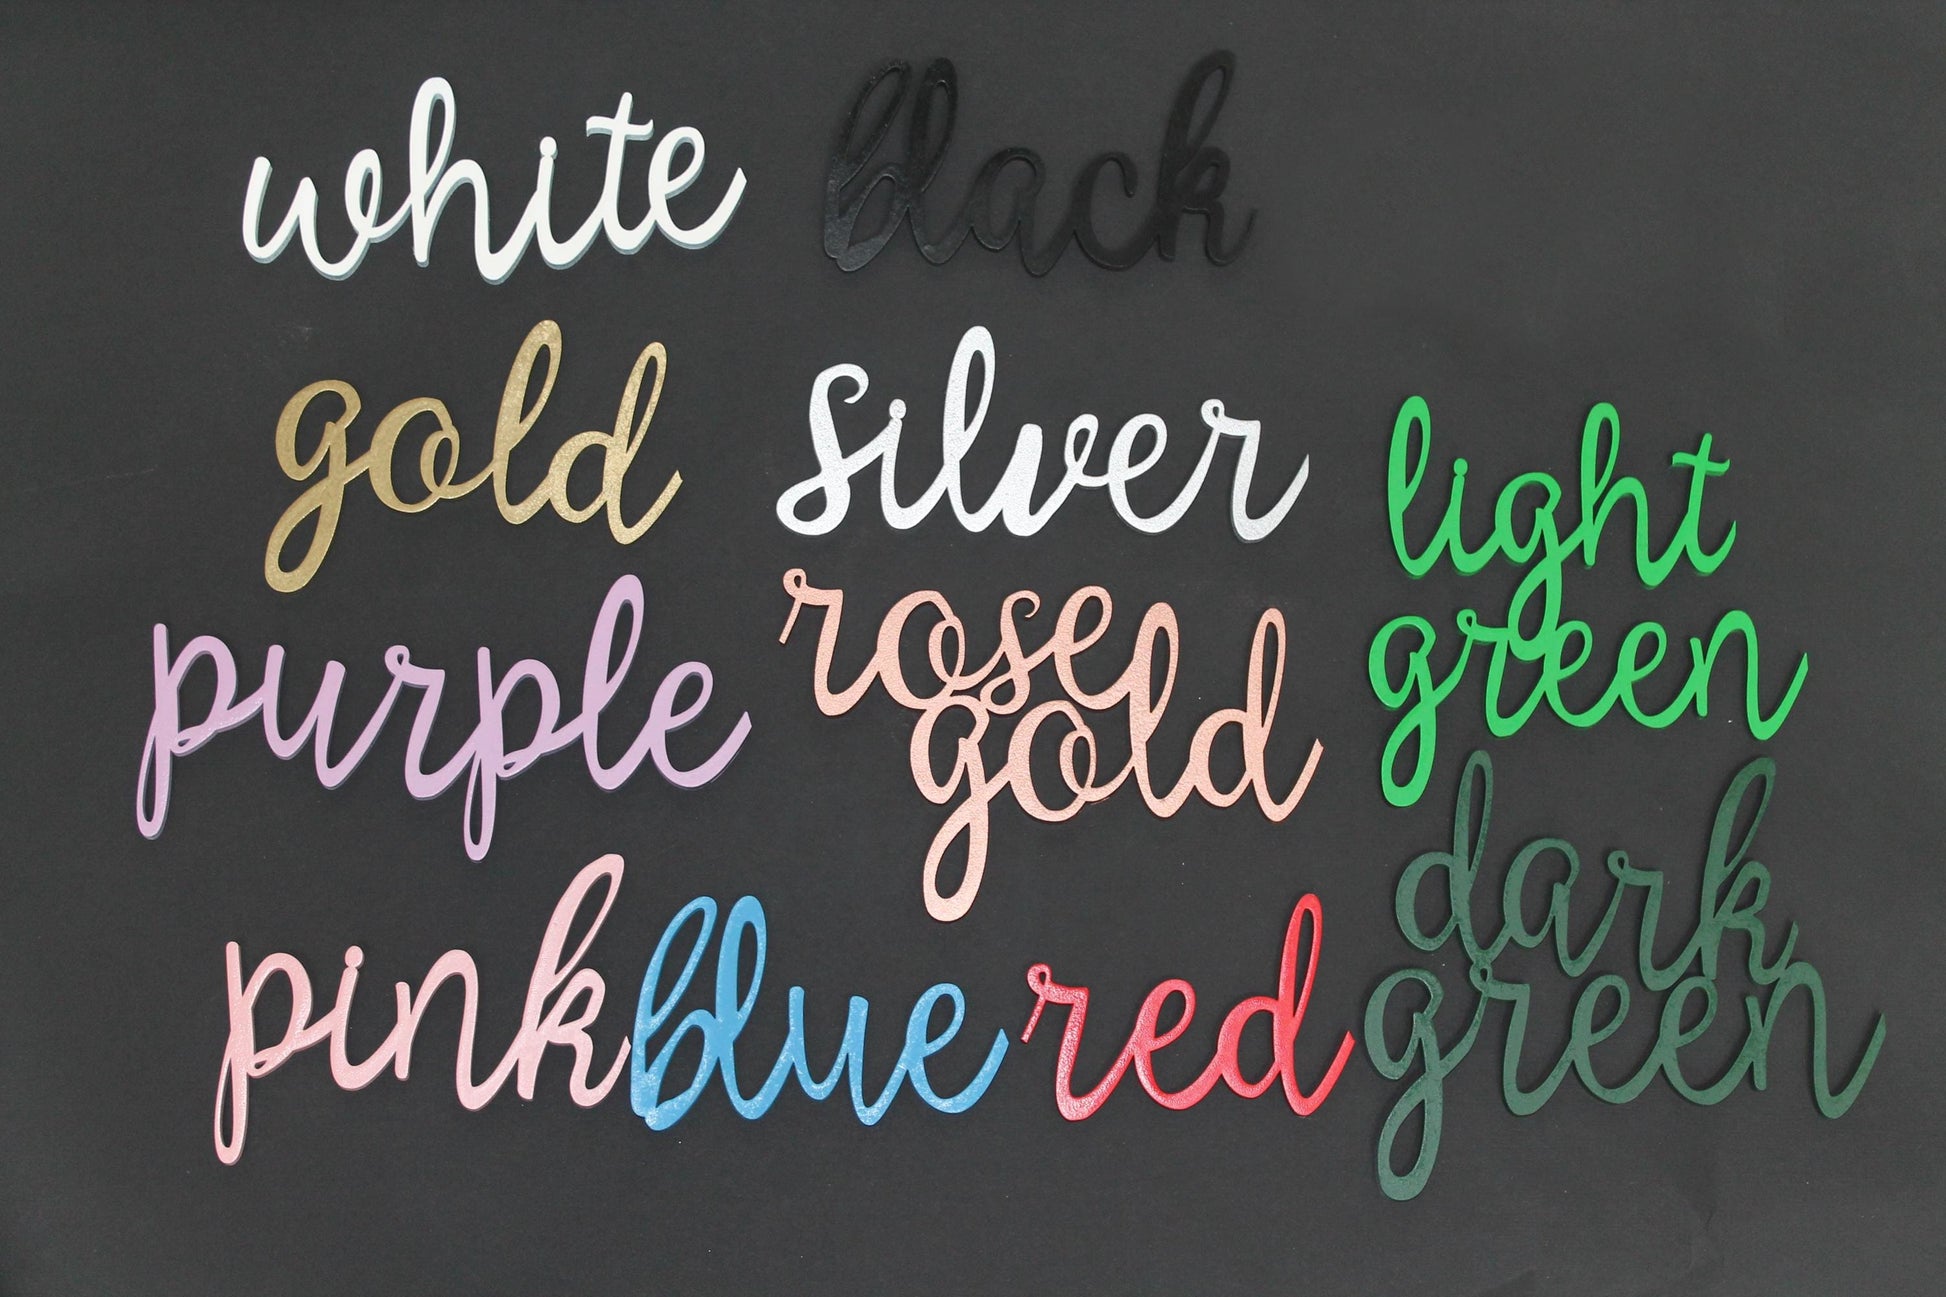 white
black
gold
silver
light
green
purple
rose
gold
dark
green
pink
blue
red